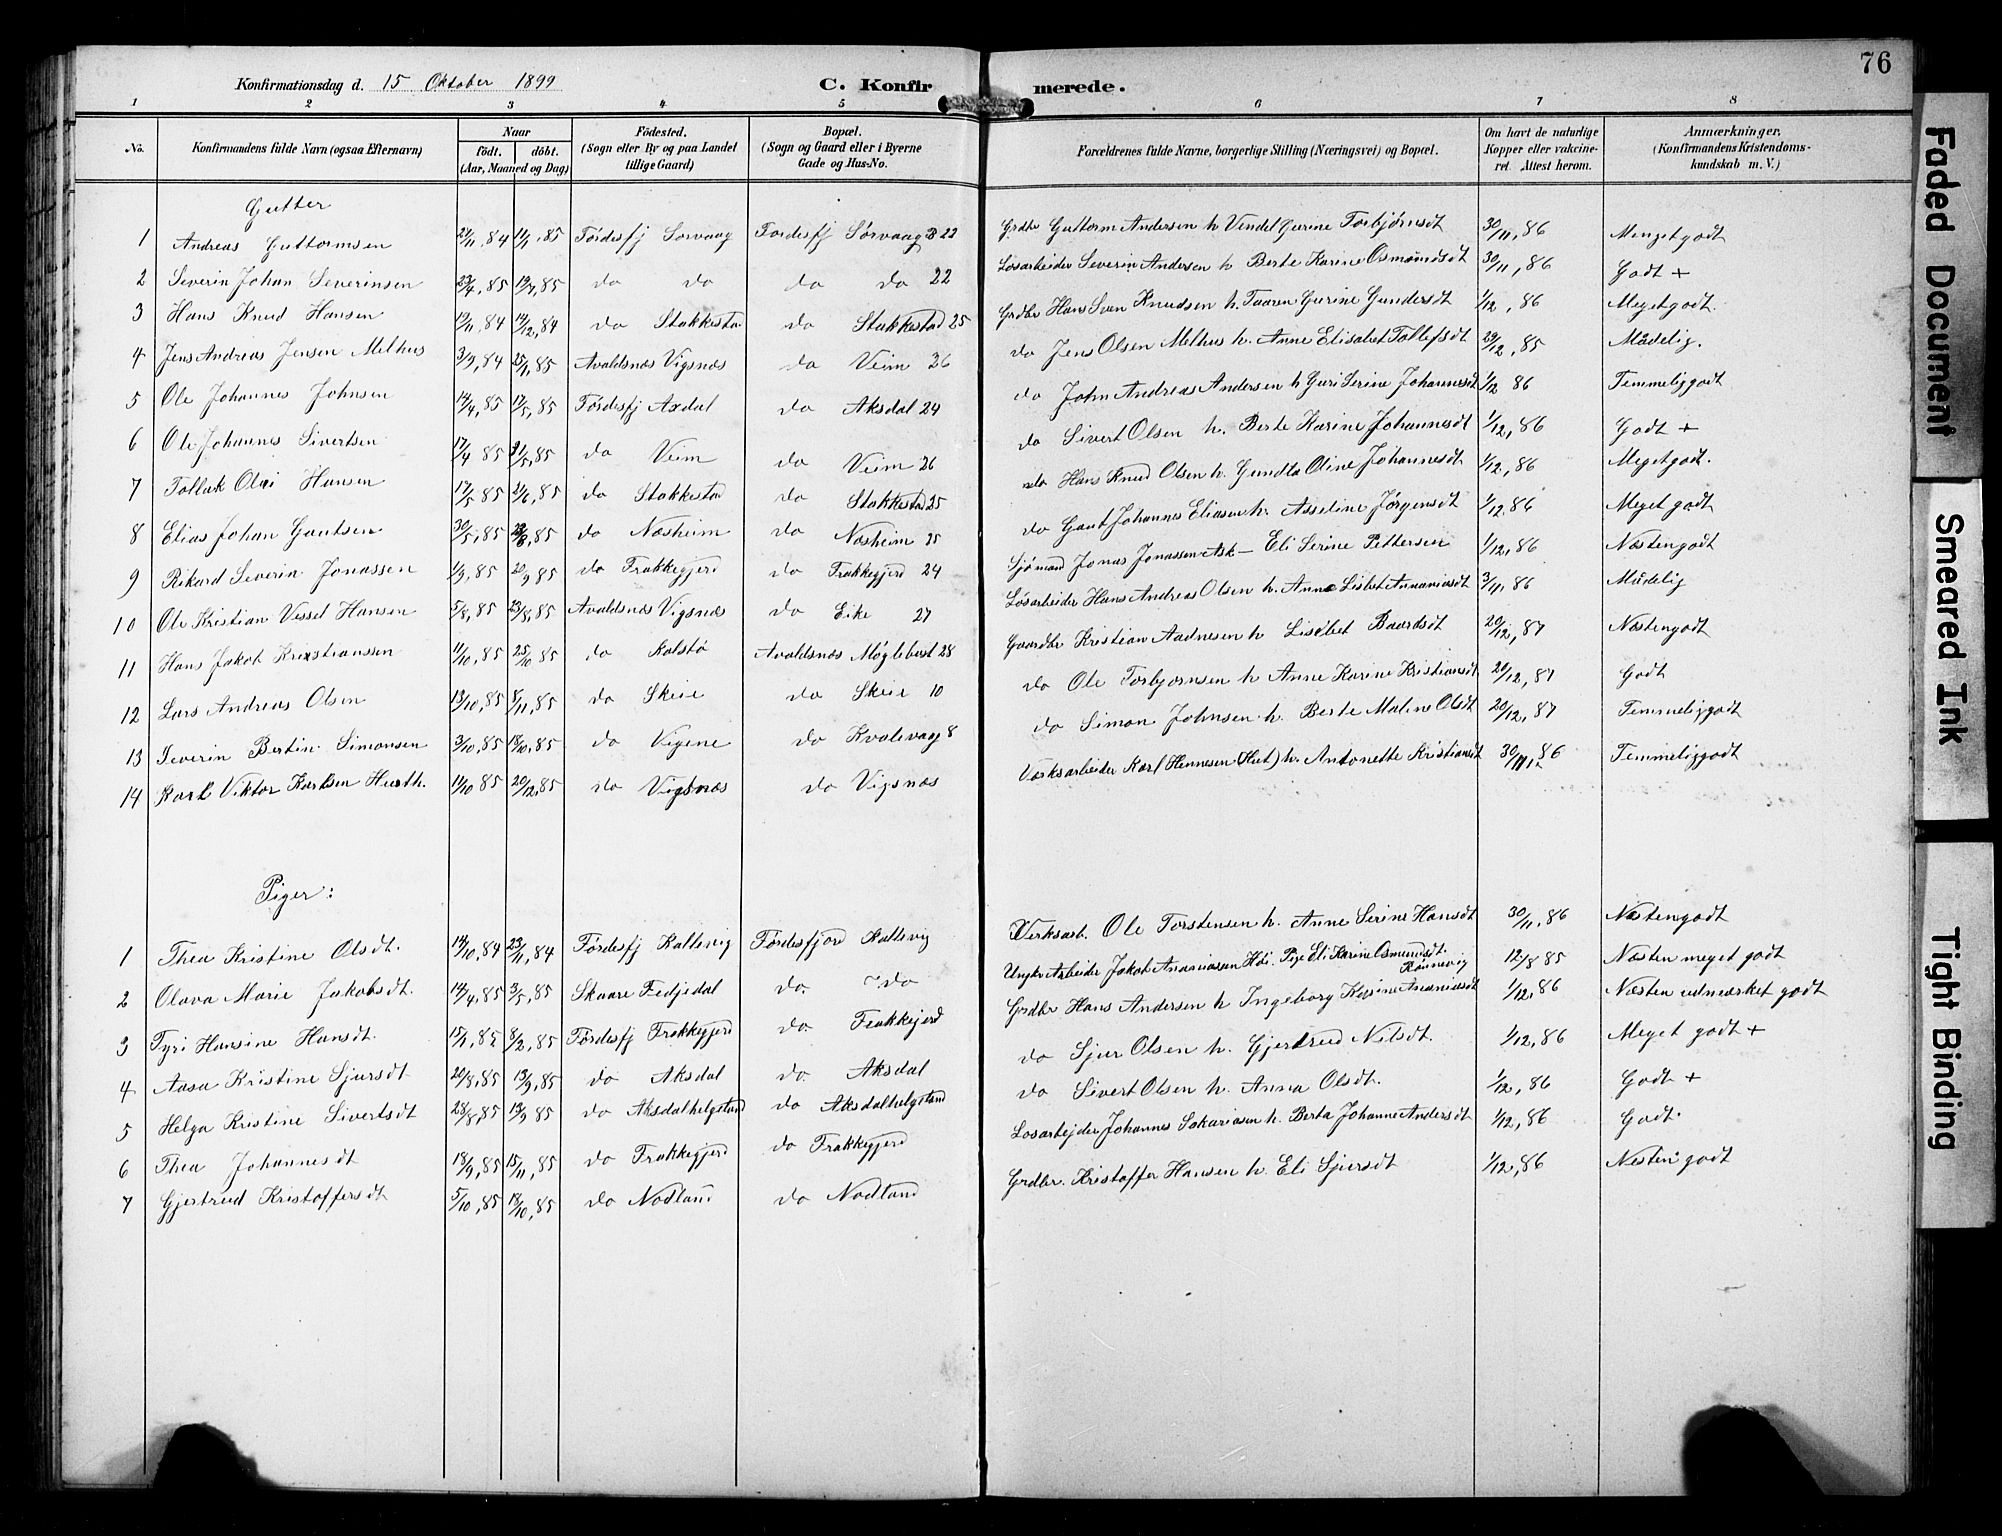 76
Konfirmationsdag d. 15 Oktober 1899
C. Konfirmerede.
1 2 3 4 5 6 7 8
No. Konfirmandens fulde Navn (ogsaa Efternavn) Naar födt. döbt. (Aar, Maaned og Dag) Födested. (Sogn eller By og paa Landet tillige Gaard) Bopæl. (Sogn og Gaard eller i Byerne Gade og Hus-No. Forældrenes fulde Navne, borgerlige Stilling (Næringsvei) og Bopæl. Om havt de naturlige Kopper eller vakcineret. Attest herom. Anmærkninger. (Konfirmandens Kristendomskundskab m. V.)
Gutter
1 Andreas Guttormsen 84 11/1,85 Fördesfj Sorvaag Fordesfj Sørvaag 22 Grdbr Guttorm Andersen h Vendel Gurine Torbjørnsdt 30/11,86 Megetgodt
2 Severin Johan Severinsen 23/4,85 19/7,85 do do do do 22 Løsarbeider Severin Andersen h. Berte Karine Osmundsdt 30/11,86 Godt +
3 Hans Knud Hansen 19/11,84 14/12,84 do Stakkestad do Stakkestad 25 Grdbr Hans Sven Knudsen h. Taaren Gurine Gundersdt 1/12,86 Megetgodt.
4 Jens Andreas Jensen Melhus 3/9,84 25/1,85 Avaldsnæs Vigsnæs do Veim 26 do Jens Olsen Melhus h. Anne Elisabet Tollefsdt 29/12,85 Mådelig.
5 Ole Johannes Johnsen 14/4,85 17/5,85 Fördesfj Axdal do Aksdal 24 do John Andreas Andersen h Guri Serine Johannesdt 1/12 86 Temmeliggodt
6 Ole Johannes Sivertsen 17/4 85 21/5,85 do Veim do Veim 26 do Sivert Olsen h. Berte Karine Johannesdt 1/12,86 Godt +
7 Tollak Olai Hansen 17/5,85 21/6,85 do Stakkestad do Stakkestad 25 do Hans Knud Olsen h. Gundla Oline Johannesdt 1/12,86 Megetgodt.
8 Elias Johan Gautsen 30/5,85 23/8,85 do Næsheim do Næsheim 25 do Gaut Johannes Eliasen h. Asseline Jørgensdt 1/12,86 Meget godt
9 Rikard Severin Jonassen 1/9,85 20/9 85 do Frakkegjerd do Frakkegjerd 24 Sjömand Jonas Jonassen Ask - Eli Serine Pettersen 1/12,86 Næstengodt
10 Ole Kristian Vessel Hansen 5/8,85 23/8,85 Avaldsnæs Vigsnæs do Eike 27 Løsarbeider Hans Andreas Olsen h. Anne Lisbet Ananiasdt 3/11,86 Mådelig
11 Hans Jakob Kristiansen 11/10,85 25/10 85 do Kolstø Avaldsnæs Møglebust 28 Gaardbr Kristian Aadnesen h Lisebet Baardsdt 20/12,87 Næstengodt
12 Lars Andreas Olsen 13/10,85 8/11,85 do Skeie do Skeie 10 do Ole Torbjørnsen h Anne Karine Kristiansdt 20/12,87 Godt
13 Severin Bertin Simonsen 3/10,85 18/10,85 do Vigene do Kvalevaag 8 do Simon Johnsen h. Berte Maline Olsdt 20/12,87 Temmeliggodt
14 Karl Viktor Karlsen Hurth. 11/10 85 20/12,85 do Vigsnæs do Vigsnæs Værksarbeider Karl Hennesen (Hut) h. Antonette Kristiansdt 30/11,86 Temmeliggodt
Piger:
1 Thea Kristine Olsdt. 14/10,84 23/11,84 Fördesfj Kallevig Fördesfjord Kallevig Verksarb. Ole Torstensen h. Anne Serine Hansdt 30/11,86 Næstengodt
2 Olava Marie Jakobsdt. 14/4,85 3/5,85 Skaare Fedjedal do. do Ungkr Arbeider Jakob Ananiasen Pige Eli Karine Osmundsdt. Rønnevig 12/8 85 Næsten meget godt
3 Tyri Hansine Hansdt. 15/1,85 8/2,85 Fördesfj Frakkegjerd do Frakkejerd Grdbr Hans Andersen h Ingeborg Karine Ananiasdt 1/12,86 Næsten udmærket godt
4 Aasa Kristine Sjursdt 20/8,85 13/9,85 do Aksdal do. Aksdal do Sjur Olsen h. Gjertrud Nilsdt. 1/12,86 Meget godt +
5 Helga Kristine Sivertsdt 28/8,85 19/9 85 do Aksdalhelgeland do Aksdalhelgeland do Sivert Olsen h. Anna Olsdt. 1/12,86 Godt +
6 Thea Johannesdt 18/9,85 15/11,85 do Frakkegjerd do Frakkegjerd Losarbejder Johannes Sakariasen h. Berta Johanne Andersdt 1/12,86 Godt.
7 Gjertrud Kristoffersdt 5/10,85 18/10,85 do Nodland do Nodland Grdbr. Kristoffer Hansen h. Eli Sjursdt 1/12,86 Næsten godt
Faded Document
Smeared Ink
Tight Binding